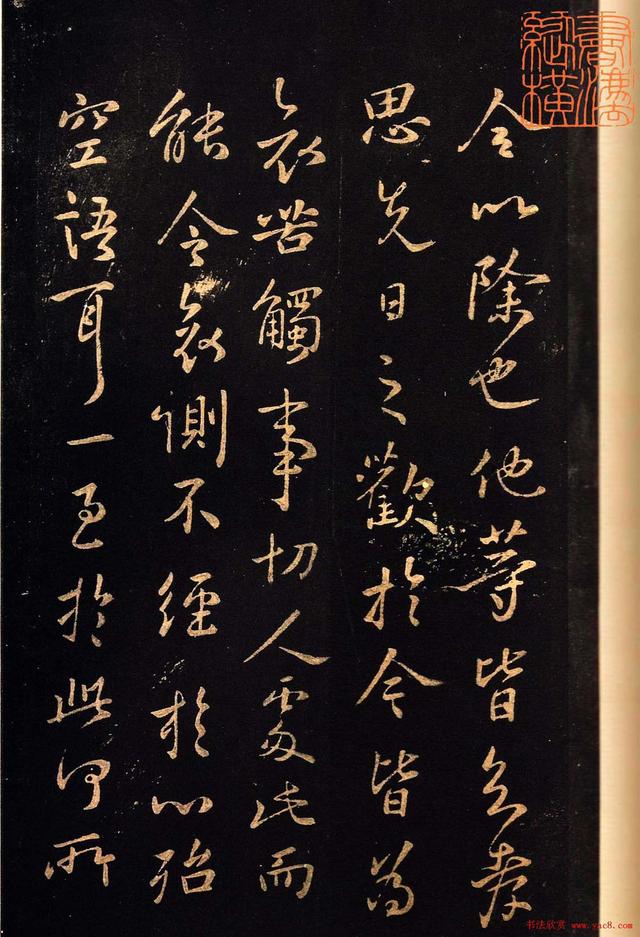 以除也他等皆
思先日之歡於今皆為
哀苦觸事切人處此而
能令哀惻不經於心殆
空語耳一至於此何所
书法欣赏 www.yac8.com